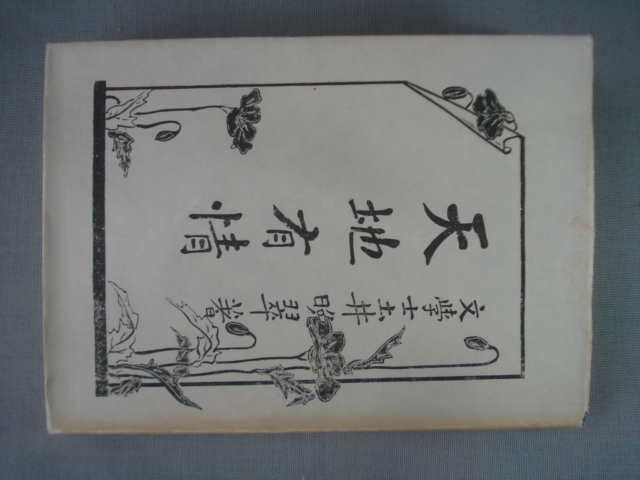 天地有情
文學士土井晩翠著